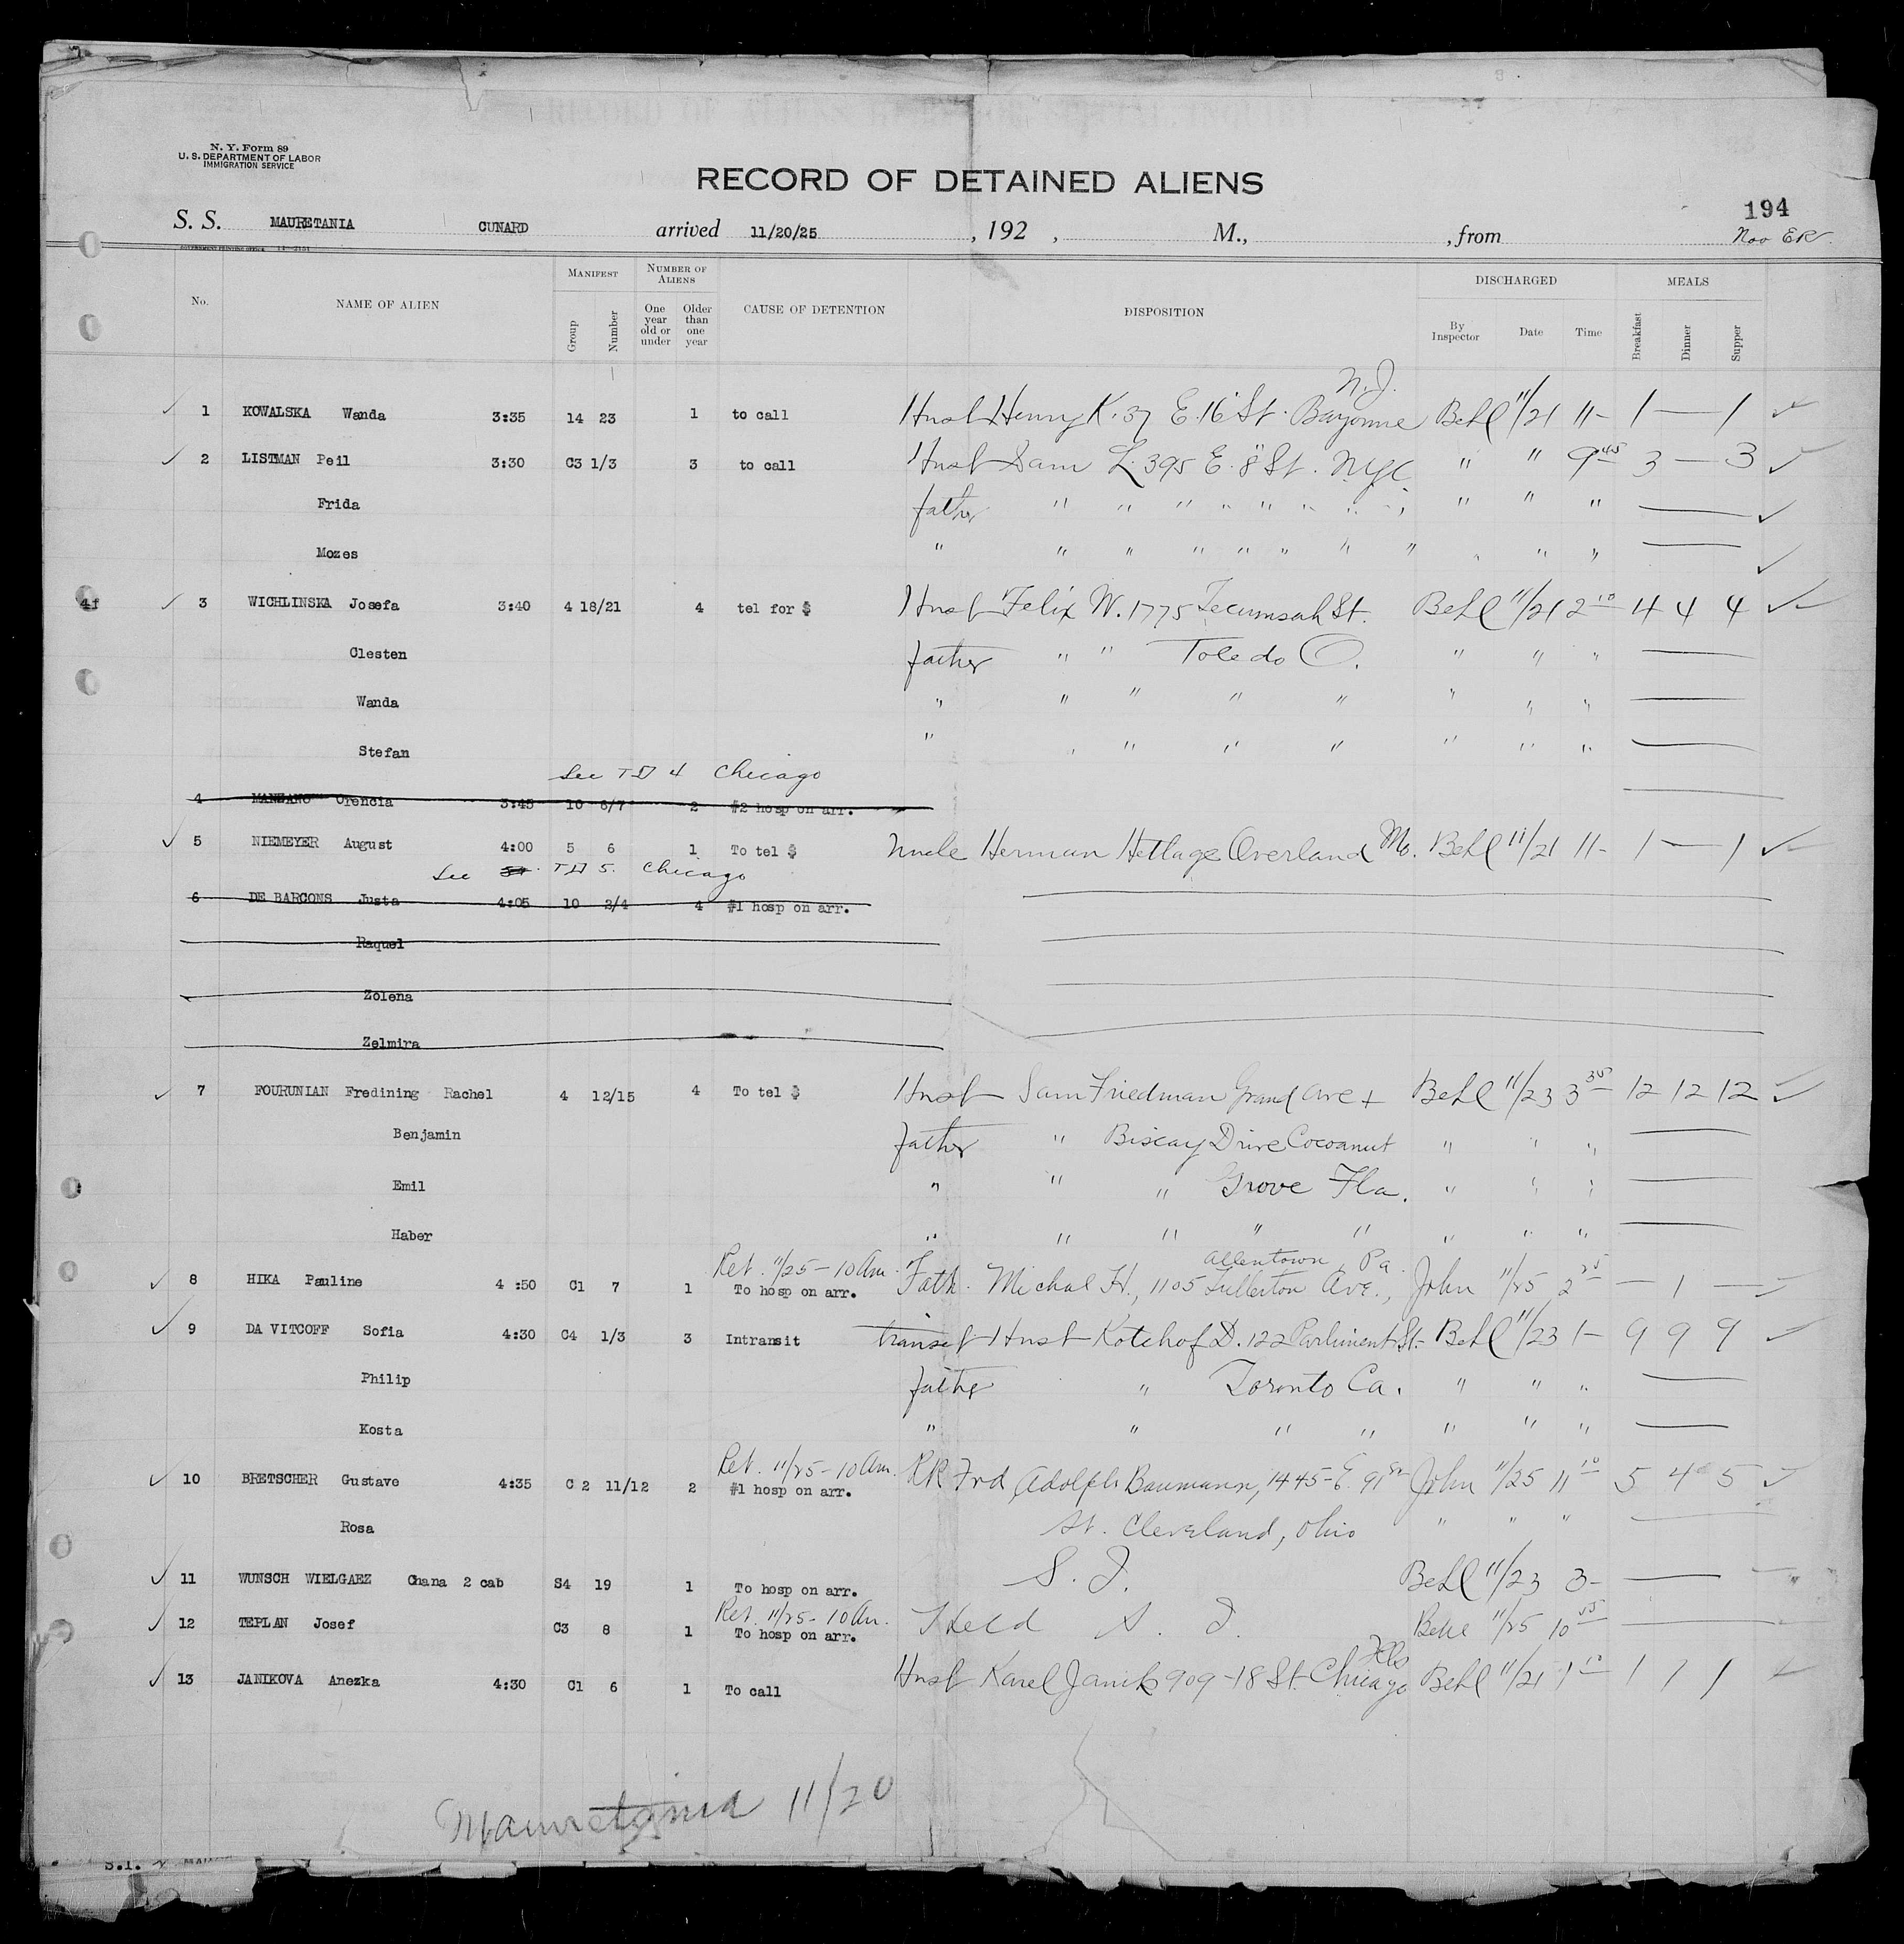 N. Y. Form 89
U. S. DEPARTMENT OF LABOR
IMMIGRATION SERVICE
RECORD OF DETAINED ALIENS
194
S. S. MAURETANIA CUNARD arrived 11/20/25, 192 , M., , from Nov ER
No. NAME OF ALIEN MANIFEST Group Number NUMBER OF ALIENS One year old or under Older than one year CAUSE OF DETENTION DISPOSITION DISCHARGED By Inspector Date Time MEALS Breakfast Dinner Supper
N.J.
1 KOWALSKA Wanda 3:35 14 23 1 to call Husb Henry K. 37 E. 16" St. Bayonne Behl 11/21 11- 1 — 1
2 LISTMAN Peil 3:30 C3 1/3 3 to call Husb Sam L. 395 E. 8" St. NYC " " 9 45 3 — 3
Frida father " " " " " " " " " " "
Mozes " " " " " " " " " " "
4f 3 WICHLINSKA Josefa 3:40 4 18/21 4 tel for $ Husb Felix W. 1775 Tecumsah St. Behl 11/21 2 10 4 4 4
Clesten father " " Toledo O. " " "
Wanda " " " " " " " "
Stefan " " " " " " " "
See TD 4 Chicago
4 MANZANO Orencia 3:45 10 6/7 2 #2 hosp on arr.
5 NIEMEYER August 4:00 5 6 1 To tel $ Uncle Herman Hetlage Overland Mo. Behl 11/21 11- 1 — 1
See TD 5. Chicago
6 DE BARCONS Justa 4:05 10 2/4 4 #1 hosp on arr.
Raquel
Zolena
Zelmira
7 FOURUNIAN Fredining Rachel 4 12/15 4 To tel $ Husb Sam Friedman Grand Ave + Behl 11/23 3 35 12 12 12
Benjamin father " Biscay Drive Cocoanut " " "
Emil " " " Grove Fla. " " "
Haber " " " " " " " "
Ret. 11/25 - 10 Am. Allentown, Pa.
8 HIKA Pauline 4 :50 C1 7 1 To hosp on arr. Fath. Michal H., 1105 Fullerton Ave., John 11/25 2 25 — 1 —
9 DA VITCOFF Sofia 4:30 C4 1/3 3 Intransit transit Husb Kotchof D. 122 Parliment St. Behl 11/23 1- 9 9 9
Philip father " Toronto Ca. " " "
Kosta " " " " " " "
Ret. 11/25 - 10 Am.
10 BRETSCHER Gustave 4:35 C 2 11/12 2 #1 hosp on arr. RR Frd Adolph Baumann, 1445 - E. 91st John 11/25 11 10 5 4 5
Rosa St. Cleveland, Ohio " " "
11 WUNSCH WIELGAEZ Chana 2 cab S4 19 1 To hosp on arr. S. I. Behl 11/23 3- —
Ret. 11/25 - 10 Am.
12 TEPLAN Josef C3 8 1 To hosp on arr. Held S. I. Behl 11/25 10 55 —
Ills
13 JANIKOVA Anezka 4:30 C1 6 1 To call Husb Karel Janik 909 - 18 St. Chicago Behl 11/21 1 10 1 1 1
Mauretania 11/20
S.I.